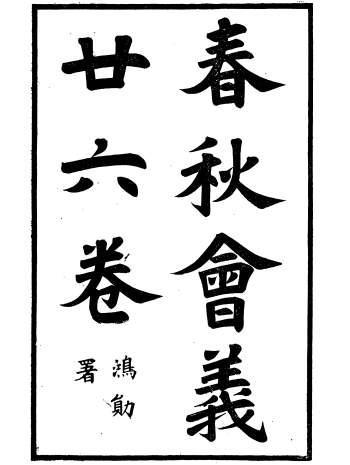 春秋會義
廿六卷
鴻勛
署